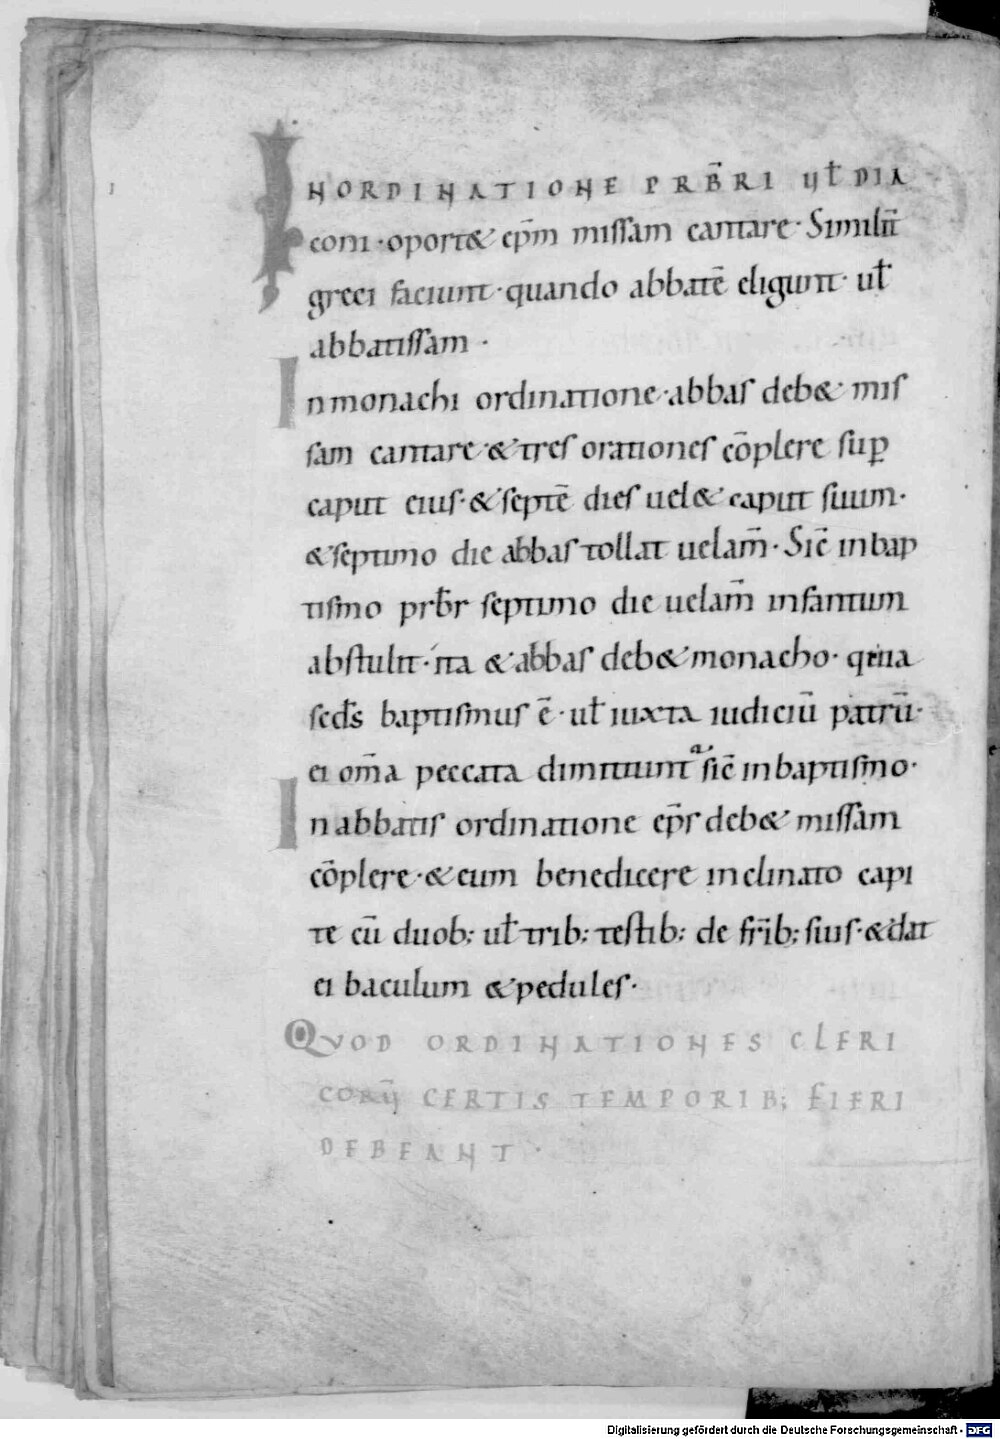 INORDINATIONE PRB̄RI UƚDIA
coni · oport& ep̄m missam cantare · Similit̄
greci faciunt · quando abbatē eligunt · uƚ
abbatissam ·
In monachi ordinatione · abbas deb& mis
sam cantare · & tres orationes cōplere suꝑ
caput eius · & septē dies uel& caput suum ·
& septimo die abbas tollat uelam̄ · Sic̄ inbap
tismo prb̄r septimo die uelam̄ infantum
abstulit · ita & abbas deb& monacho · quia
seds̄ baptismus ē · uƚ iuxta iudiciū patrū ·
ei om̄a peccata dimittunt᷑ sic̄ inbaptismo ·
In abbatis ordinatione ep̄s deb& missam
cōplere · & eum benedicere inclinato capi
te cū duob; uƚ trib; testib; de fr̄ib; suis · & dat
ei baculum & pedules ·
QUOD ORDINATIONES CLERI
CORŪ CERTIS TEMPORIB; FIERI
DEBEANT ·
Digitalisierung gefördert durch die Deutsche Forschungsgemeinschaft - DFG